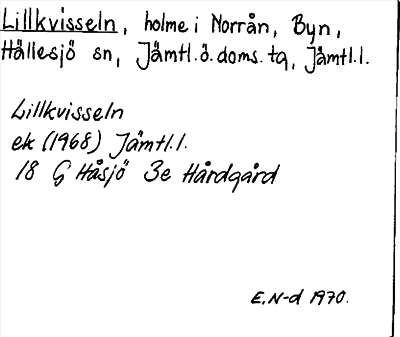 Lillkvisseln, holme i Norrån, Byn,
Hällesjö sn, Jämtl.ö.doms.tg, Jämtl.l.
Lillkvisseln
ek (1968) Jämtl.l.
18 G Håsjö 3e Hårdgård
E.N-d 1970.